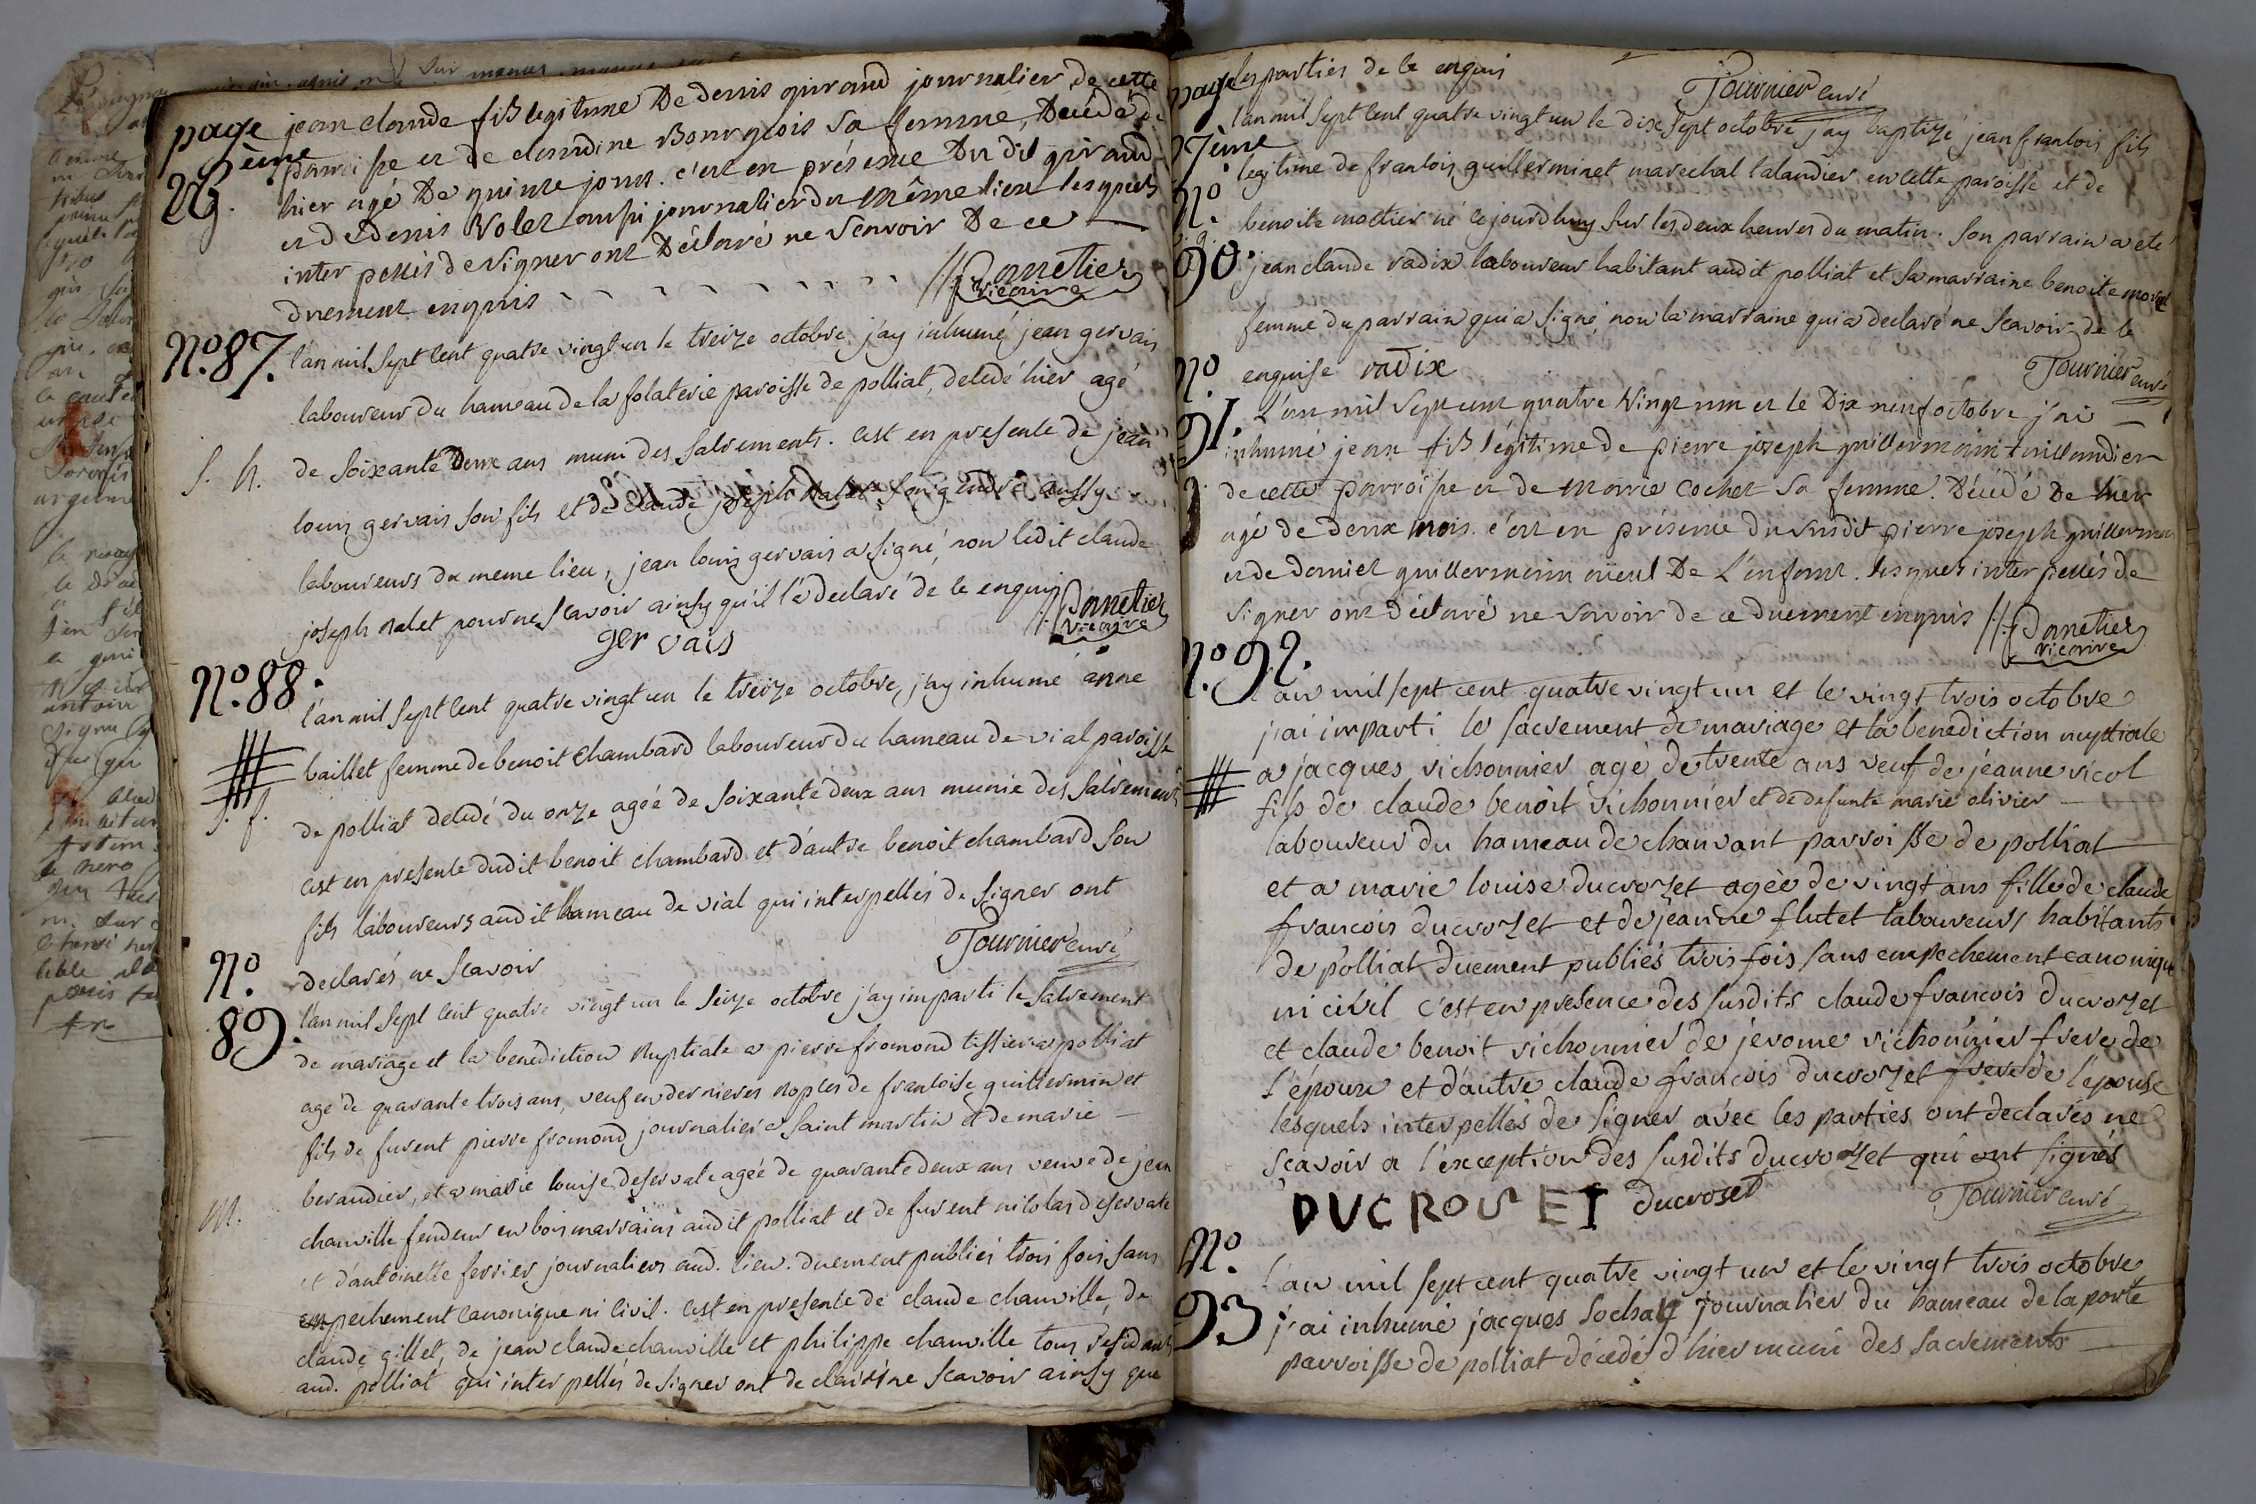 page
26ème
jean claude fils legitime De denis girand journalier de cette
parroisse et de claudine Bourgeois sa femme, Décédé d
hier agé De quinze jours. c'est en présence Du dit girand
et de denis Volet aussi journalier du même lieu lesquels
inter pellés de signer ont Déclaré ne Scavoir De ce
duement enquis
Panetier
vicaire
No. 87.
l'an mil sept cent quatre vingt un le treize octobre, j'ay inhumé jean gervais
laboureur du hameau de la folaterie paroisse de polliat, decedé hier agé
de soixante Deux ans muni des sacrements. cest en presence de jean
louis gervais son fils et de claude joseph nalet son gendre aussy
laboureurs du meme lieu, jean louis gervais a signé, non ledit claude
joseph nalet pour ne scavoir ainsy qu'il l'a declaré de ce enquis
gervais
Panetier
vicaire
S. h.
No. 88.
l'an mil sept cent quatre vingt un le treize octobre, j'ay inhumé anne
baillet femme de benoit chambard laboureur du hameau de vial paroisse
de polliat decedé du onze agée de soixante deux ans munie des sacrements
cest en presence dudit benoit chambard et d'autre benoit chambard son
fils laboureurs audit hameau de vial qui interpellés de signer ont
declarés ne scavoir
Tournier curé
S. f.
No.
89.
l'an mil sept cent quatre vingt un le seize octobre j'ay imparti le sacrement
de mariage et la benediction nuptiale a pierre fromond tissier a polliat
agé de quarante trois ans, veuf en dernieres noples de francoise guillermin et
fils de furent pierre fromond journalier a saint martin et de marie
beraudier, et a marie louise deservate agée de quarante deux ans veuve de jean
chanville fendeur en bois marrains audit polliat et de furent nicolas deservate
et d'antoinette ferrier journaliers aud. lieu. duement publiés trois fois sans
empechement canonique ni civil. cest en presence de claude chanville, de
claude gillet, de jean claude chanville et philippe chanville tous residants
aud. polliat qui interpellés de signer ont declaré ne scavoir ainsy que
m.
page
27ème
les parties de ce enquis
Tournier curé
No.
90.
l'an mil sept cent quatre vingt un le dix sept octobre j'ay baptizé jean francois fils
legitime de francois guillerminet marechal talandier en cette paroisse et de
benoite mottier né cejourdhuy sur les deux heures du matin. son parrain a eté
jean claude radix laboureur habitant audit polliat et sa marraine benoite morel
femme du parrain qui a signé non la marraine qui a declaré ne scavoir de ce
enquise radix
Tournier curé
No
91.
L'an mil sept cent quatre Vingt un et le Dix neuf octobre j'ai
inhumé jean fils légitime de pierre joseph guillermin taillandier
de cette parroisse et de marie cochet sa femme. Décédé De hier
agé de deux mois. c'est en présence du susdit pierre joseph guillermin
et de daniel guillermin aieul De L'enfant. lesquels interpellés de
signer ont déclaré ne savoir de ce duement enquis
Panetier
vicaire
No. 92.
l'an mil sept cent quatre vingt un et le vingt trois octobre
j'ai imparti le sacrement de mariage et la benediction nuptiale
a jacques vichonnier agé de trente ans veuf de jéanne vicol
fils de claude benoit vichonnier et de defunte marie olivier
laboureur du hameau de chanvant parroisse de polliat
et a marie louise ducrozet agée de vingt ans fille de claude
francois ducrozet et de jeanne flutet laboureurs habitants
de polliat duement publiés trois fois sans empechement canonique
ni civil c'est en presence des susdits claude francois ducrozet
et claude benoit vichonnier de jerome vichonnier frere de
l'époux et d'autre claude francois ducrozet frere de l'epouse
lesquels interpellés de signer avec les parties ont declarés ne
scavoir a l'exception des susdits ducrozet qui ont signés
DUCROUZET ducroset
Tournier curé
No.
93
l'an mil sept cent quatre vingt un et le vingt trois octobre
j'ai inhumé jacques sochay journalier du hameau de la porte
parroisse de polliat décédé d'hier muni des sacrements